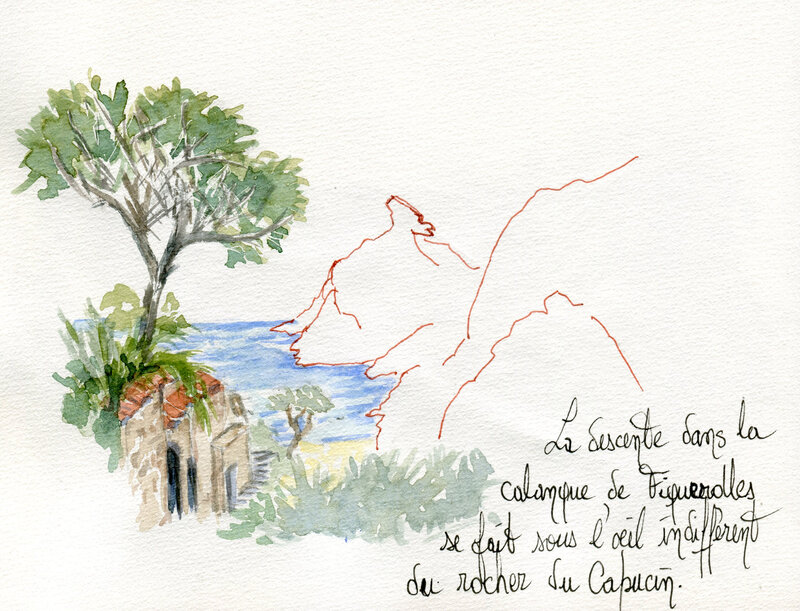 La descente dans la
calanque de Figuerolles
se fait sous l'œil indifférent
du rocher du Capucin.